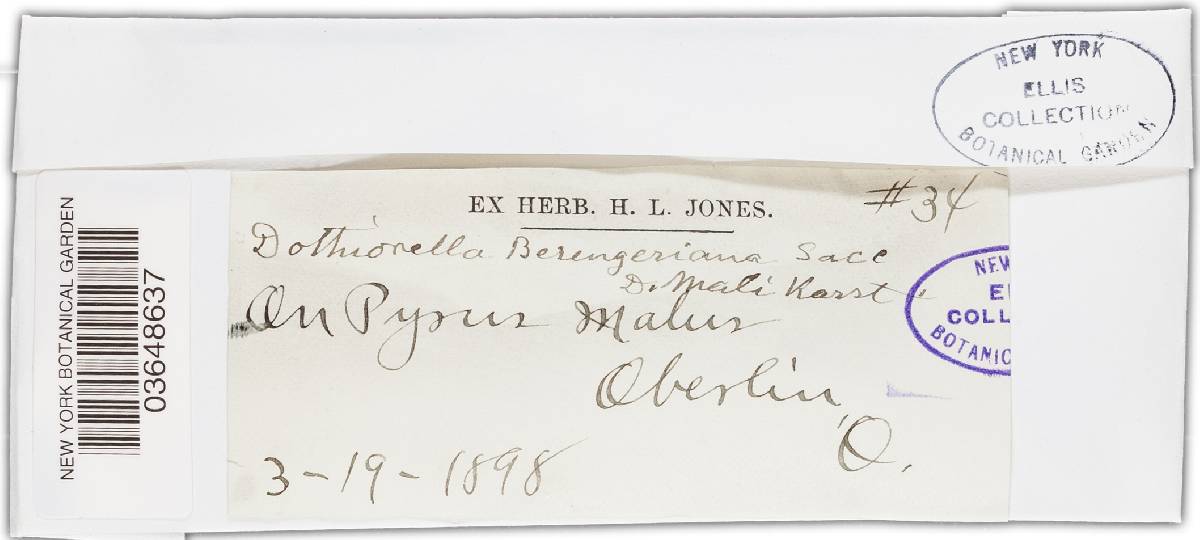 NEW YORK
ELLIS
COLLECTION
BOTANICAL GARDEN
EX HERB. H. L. JONES.
#34
Dothiorella Berengeriana Sacc
D. Mali Karst
On Pyrus Malus
Oberlin,
O.
3-19-1898
NEW
EL
COLL
BOTANIC
NEW YORK BOTANICAL GARDEN
03648637